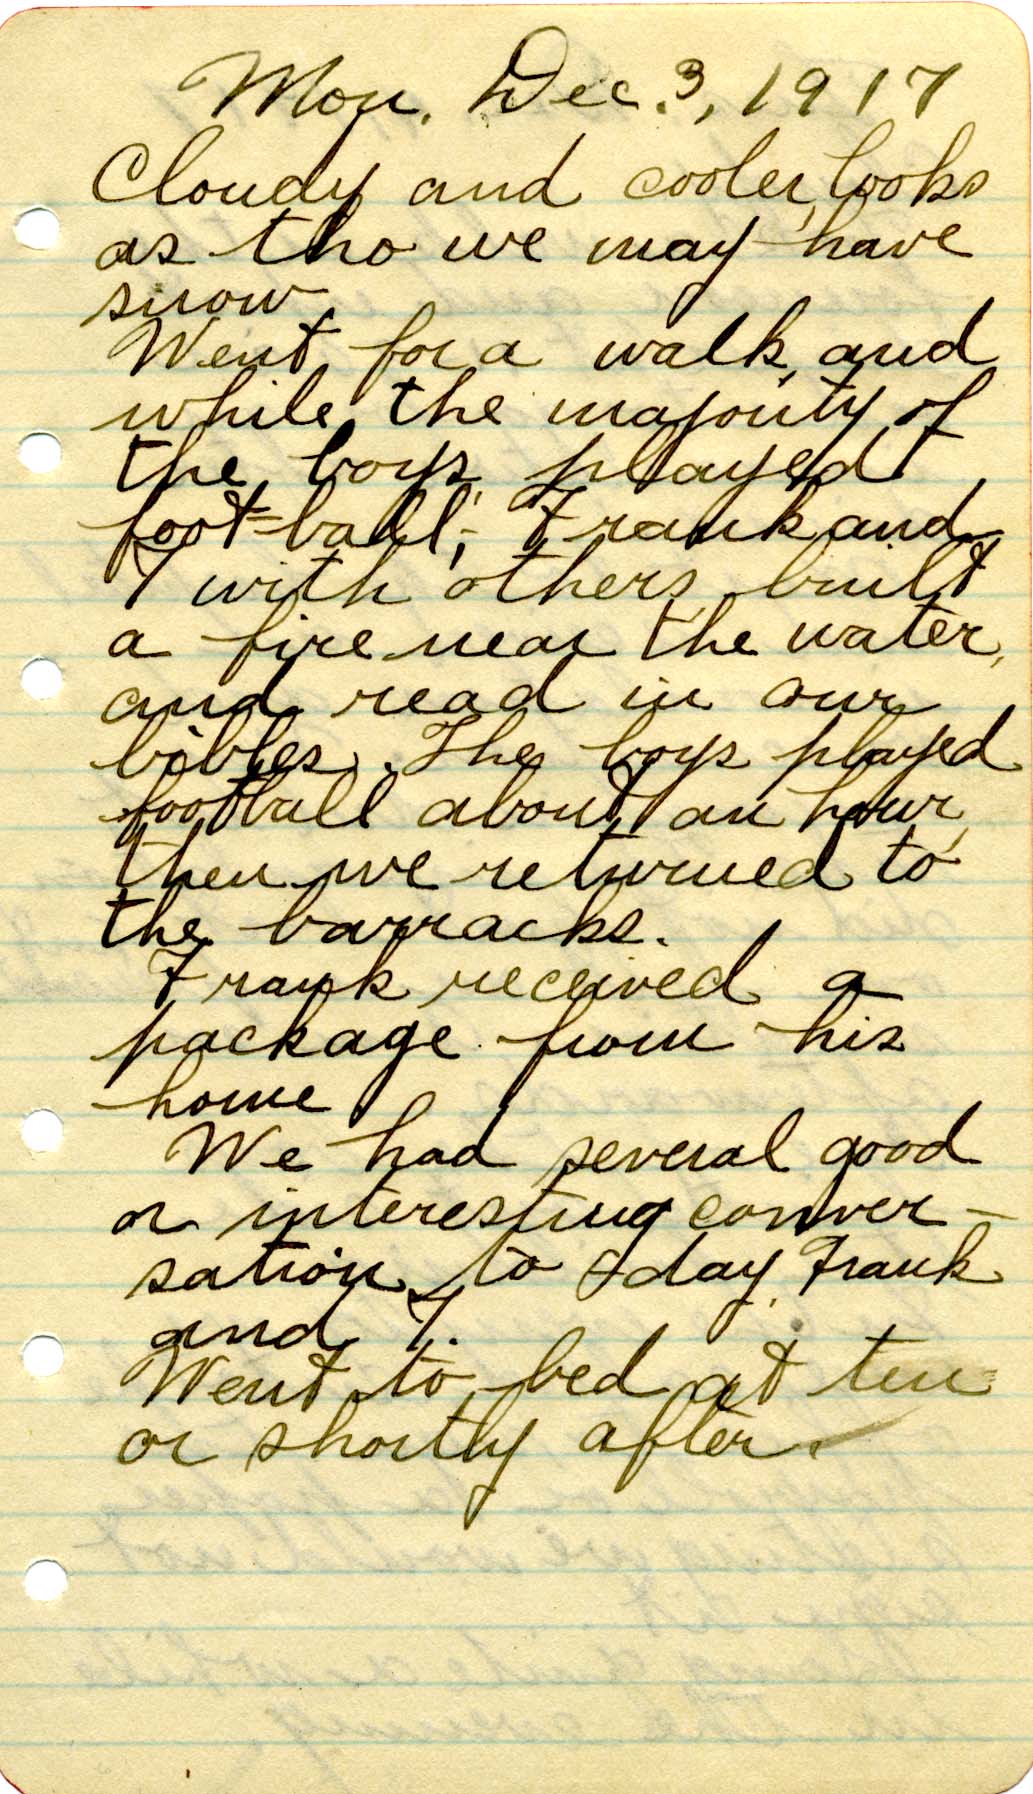 Mon. Dec. 3, 1917
Cloudy and cooler, looks
as tho we may have
snow.
Went for a walk, and
while the majority of
the boys played
foot-ball; Frank and
I with others built
a fire near the water,
and read in our
bibles. The boys played
football about an hour,
then we returned to
the barracks.
Frank received a
package from his
home.
We had several good
or interesting conver-
sation, to day, Frank
and I.
Went to bed at ten
or shortly after.